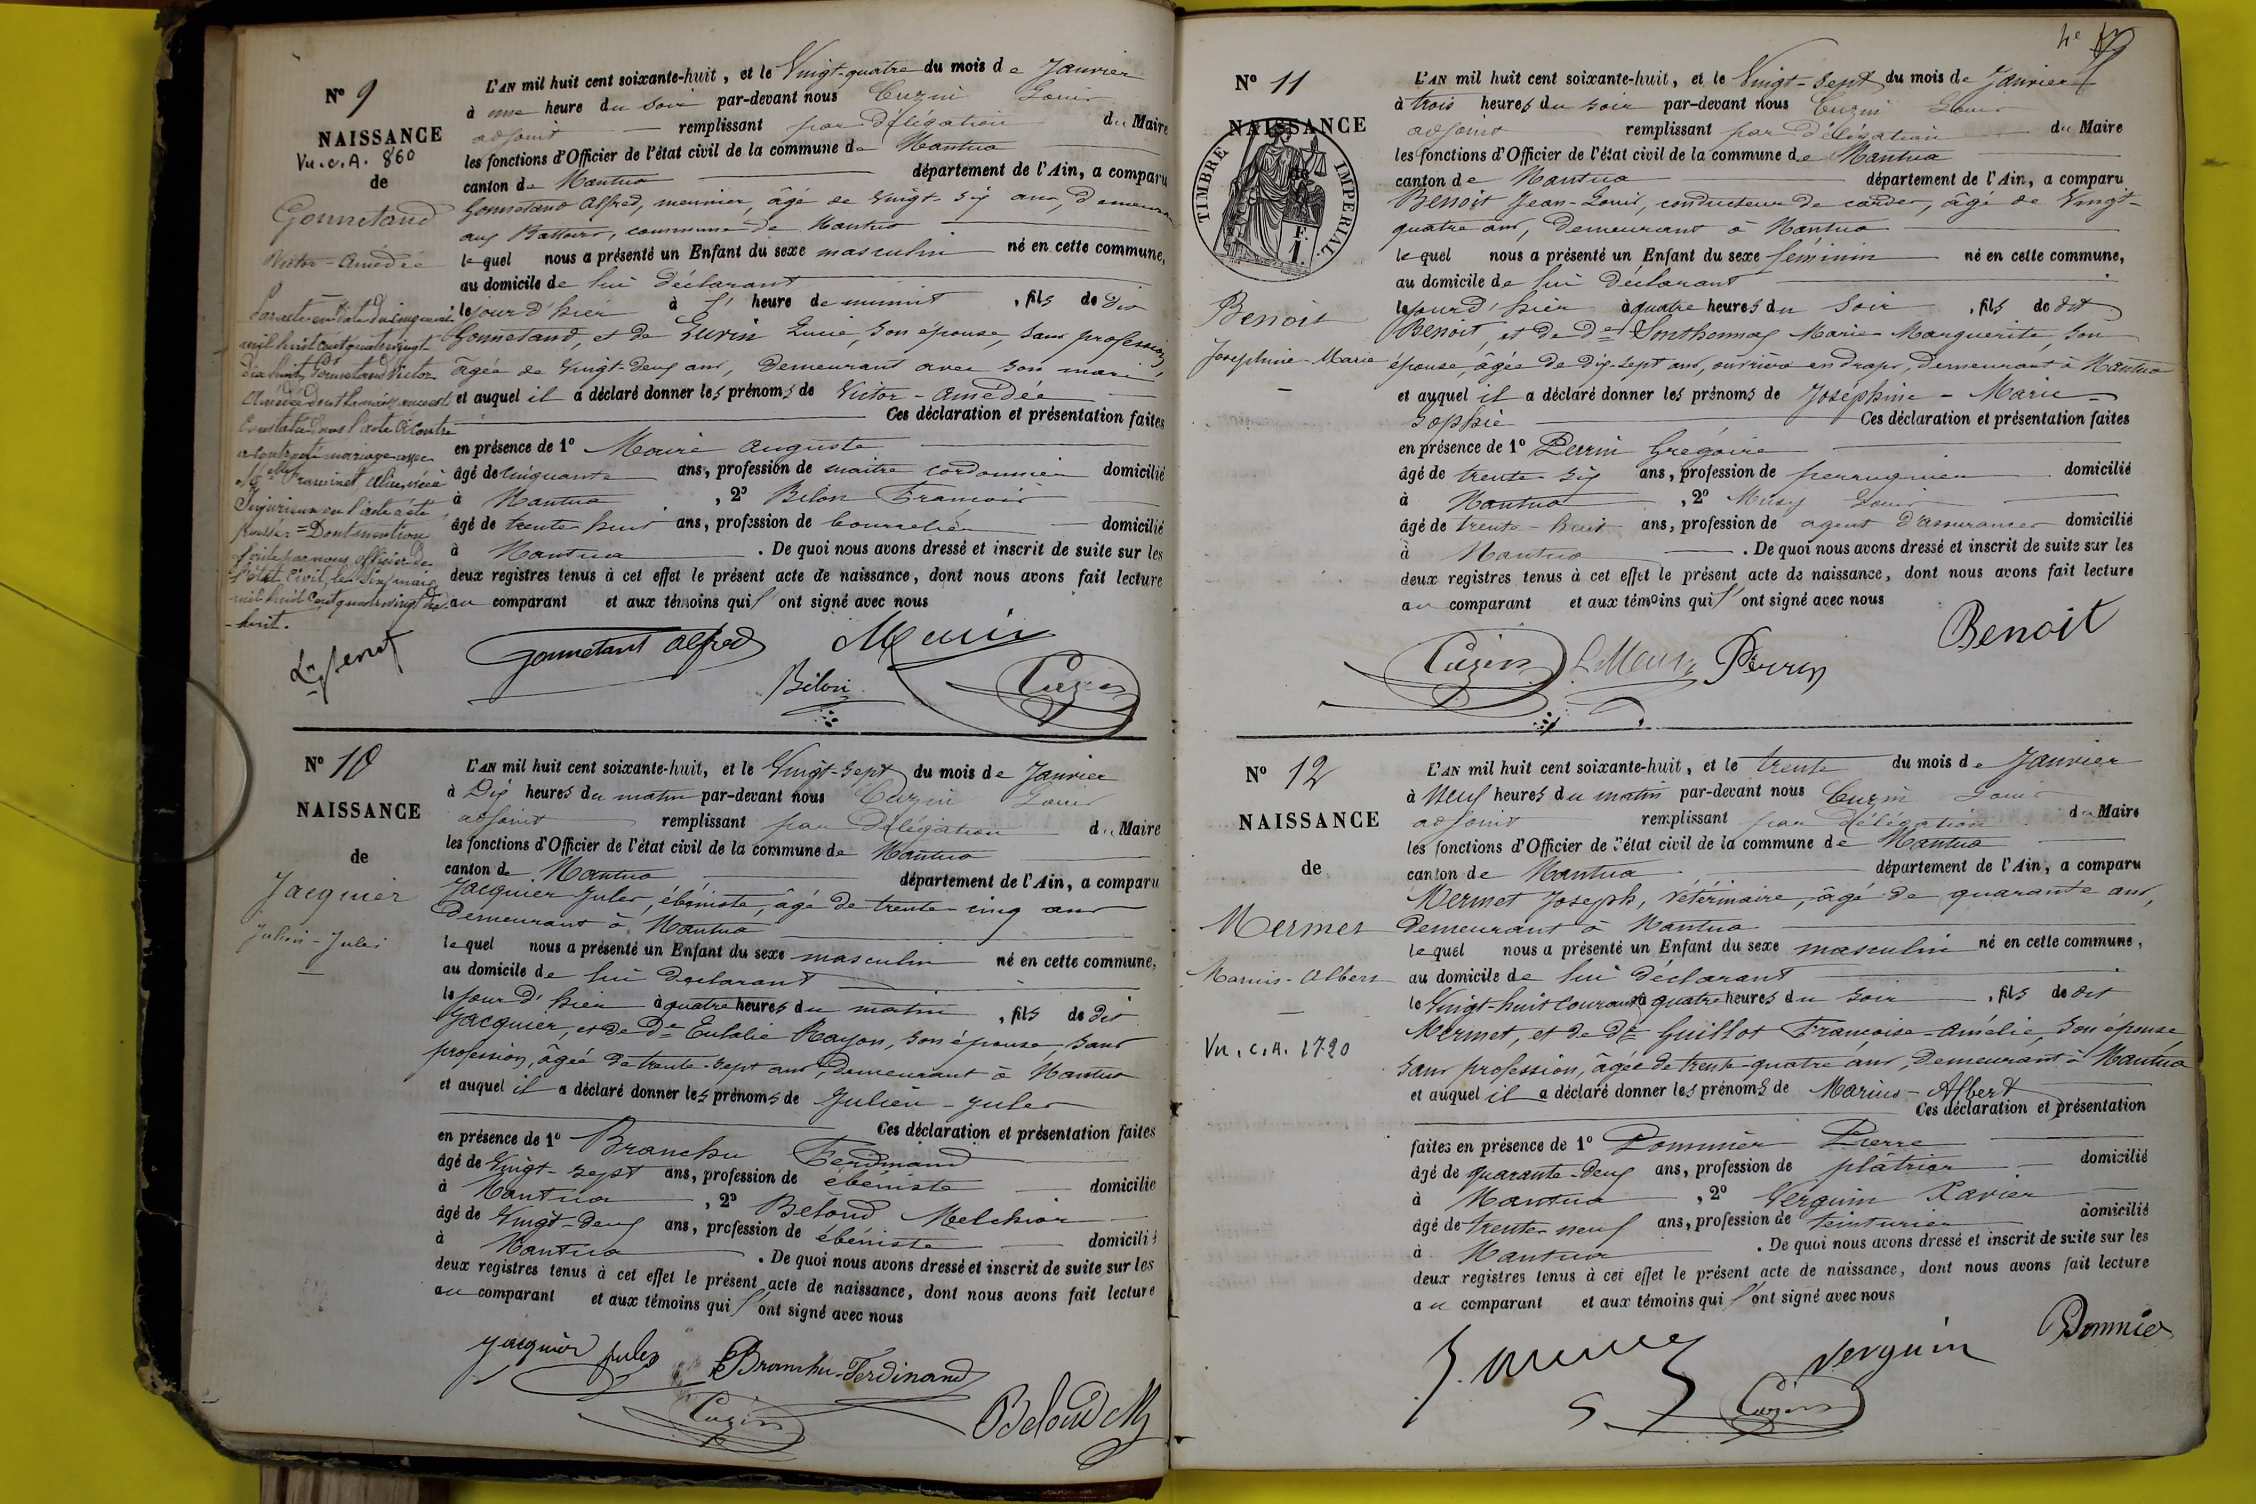 N° 9
NAISSANCE
Vu. c. A. 860
de
Gonnetand
Victor-Amédée
Par acte en date du cinq mars
mil huit cent quatre vingt
dix huit, Gonnetand Victor
Amédée dont la naissance est
constatée dans l'acte ci contre
a contracté mariage avec
Alice, née à
Injurieux en l'acte a été
Dont mention
faite par nous officier de
l'Etat Civil, le mars
mil huit cent quatre vingt dix
-huit.
L'AN mil huit cent soixante-huit, et le Vingt-quatre du mois de Janvier
à une heure du soir par-devant nous Cuzin Louis
adjoint remplissant par délégation du Maire
les fonctions d'Officier de l'état civil de la commune de Nantua
canton de Nantua département de l'Ain, a comparu
Gonnetand Alfred, meunier, âgé de vingt-six ans, demeurant
aux Battoirs, commune de Nantua
lequel nous a présenté un Enfant du sexe masculin né en cette commune,
au domicile de lui déclarant
le jour d'hier à l' heure de minuit, fils de dit
Gonnetand, et de Lucie, son épouse, sans profession,
âgée de vingt-deux ans, demeurant avec son mari,
et auquel il a déclaré donner les prénoms de Victor-Amédée
Ces déclaration et présentation faites
en présence de 1° Auguste
âgé de cinquante ans, profession de maitre cordonnier domicilié
à Nantua, 2° Bilon François
âgé de trente huit ans, profession de bourrelier domicilié
à Nantua. De quoi nous avons dressé et inscrit de suite sur les
deux registres tenus à cet effet le présent acte de naissance, dont nous avons fait lecture
au comparant et aux témoins qui l'ont signé avec nous
Gonnetant Alfred
Bilon
Cuzin
N° 10
NAISSANCE
de
Jacquier
Julien-Jules
L'AN mil huit cent soixante-huit, et le Vingt-sept du mois de Janvier
à Dix heures du matin par-devant nous Cuzin Louis
adjoint remplissant par délégation du Maire
les fonctions d'Officier de l'état civil de la commune de Nantua
canton de Nantua département de l'Ain, a comparu
Jacquier Jules, ébéniste, âgé de trente-cinq ans
demeurant à Nantua
lequel nous a présenté un Enfant du sexe masculin né en cette commune,
au domicile de lui déclarant
le jour d'hier à quatre heures du matin, fils de dit
Jacquier, et de De Eulalie Rayon, son épouse, sans
profession, âgée de trente-sept ans, demeurant à Nantua
et auquel il a déclaré donner les prénoms de Julien-Jules
Ces déclaration et présentation faites
en présence de 1° Branchu Ferdinand
âgé de Vingt-sept ans, profession de ébéniste domicilié
à Nantua, 2° Béloud Melchior
âgé de Vingt-deux ans, profession de ébéniste domicilié
à Nantua. De quoi nous avons dressé et inscrit de suite sur les
deux registres tenus à cet effet le présent acte de naissance, dont nous avons fait lecture
au comparant et aux témoins qui l'ont signé avec nous
Jacquier Jules
Branchu-Ferdinand
Cuzin
Beloud M
N° 11
NAISSANCE
de
TIMBRE IMPERIAL
F. 1.
Benoit
Josephine-Marie
L'AN mil huit cent soixante-huit, et le Vingt-sept du mois de Janvier
à trois heures du soir par-devant nous Cuzin Louis
adjoint remplissant par délégation du Maire
les fonctions d'Officier de l'état civil de la commune de Nantua
canton de Nantua département de l'Ain, a comparu
Benoit Jean-Louis, conducteur de cardes, âgé de Vingt-
quatre ans, demeurant à Nantua
lequel nous a présenté un Enfant du sexe féminin né en cette commune,
au domicile de lui déclarant
le jour d'hier à quatre heures du soir, fils de dit
Benoit, et de De Inthommas Marie-Marguerite, son
épouse, âgée de dix-sept ans, ouvrière en draps, demeurant à Nantua
et auquel il a déclaré donner les prénoms de Joséphine-Marie-
Sophie Ces déclaration et présentation faites
en présence de 1° Perrin Grégoire
âgé de trente-six ans, profession de perruquier domicilié
à Nantua, 2° Louis
âgé de trente-huit ans, profession de agent d'assurances domicilié
à Nantua. De quoi nous avons dressé et inscrit de suite sur les
deux registres tenus à cet effet le présent acte de naissance, dont nous avons fait lecture
au comparant et aux témoins qui l'ont signé avec nous
Benoit
Cuzin
Perrin
N° 12
NAISSANCE
de
Mermet
Marius-Albert
Vu. c. A. 1720
L'AN mil huit cent soixante-huit, et le trente du mois de Janvier
à Neuf heures du matin par-devant nous Cuzin Louis
adjoint remplissant par délégation du Maire
les fonctions d'Officier de l'état civil de la commune de Nantua
canton de Nantua département de l'Ain, a comparu
Mermet Joseph, vétérinaire, âgé de quarante ans,
demeurant à Nantua
lequel nous a présenté un Enfant du sexe masculin né en cette commune,
au domicile de lui déclarant
le Vingt-huit courant à quatre heures du soir, fils de dit
Mermet, et de De Guillot Francoise-Amélie, son épouse
sans profession, âgée de trente-quatre ans, demeurant à Nantua
et auquel il a déclaré donner les prénoms de Marius-Albert
Ces déclaration et présentation
faites en présence de 1° Pommier Pierre
âgé de quarante-deux ans, profession de plâtrier domicilié
à Nantua, 2° Verguin Xavier
âgé de trente-neuf ans, profession de teinturier domicilié
à Nantua. De quoi nous avons dressé et inscrit de suite sur les
deux registres tenus à cet effet le présent acte de naissance, dont nous avons fait lecture
au comparant et aux témoins qui l'ont signé avec nous
Pommier
Verguin
Cuzin